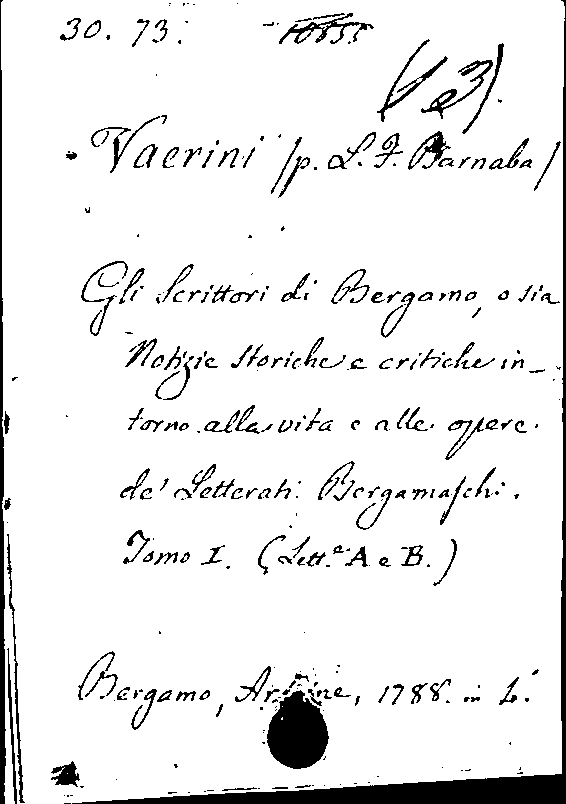 30. 73.
(1 e 3).
Vaerini /p. L. F. Barnaba/
Gli Scrittori di Bergamo, o sia
Notizie storiche e critiche in-
torno alla vita e alle opere
de' Letterati Bergamaschi.
Tomo I. (Lett.ª A e B.)
Bergamo, 1788. in 4.º